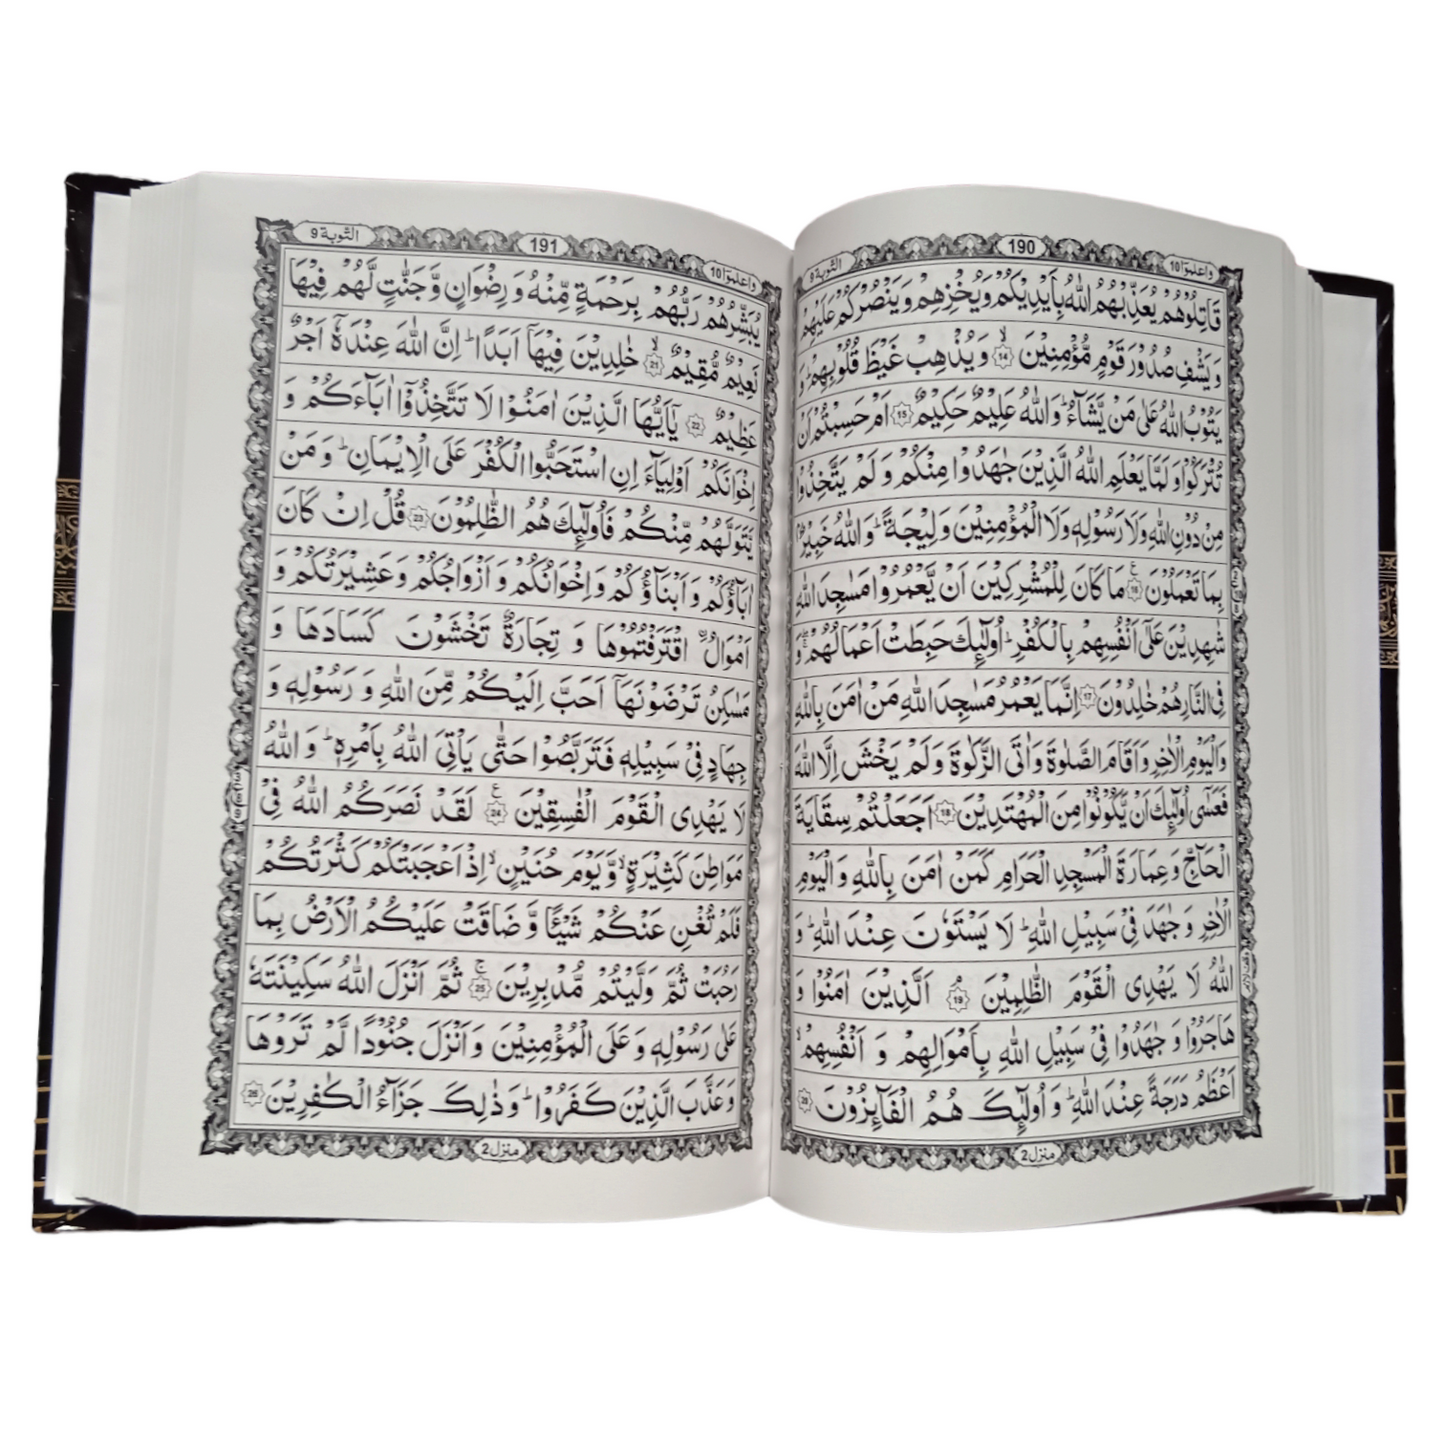 واعلموٓا 10
190
التوبة 9
قَاتِلُوْهُمْ يُعَذِّبْهُمُ اللّٰهُ بِاَيْدِيْكُمْ وَيُخْزِهِمْ وَيَنْصُرْكُمْ عَلَيْهِمْ
وَيَشْفِ صُدُوْرَ قَوْمٍ مُّؤْمِنِيْنَ ۙ 14 وَيُذْهِبْ غَيْظَ قُلُوْبِهِمْ ؕ وَ
يَتُوْبُ اللّٰهُ عَلٰى مَنْ يَّشَآءُ ؕ وَاللّٰهُ عَلِيْمٌ حَكِيْمٌ 15 اَمْ حَسِبْتُمْ اَنْ
تُتْرَكُوْا وَلَمَّا يَعْلَمِ اللّٰهُ الَّذِيْنَ جٰهَدُوْا مِنْكُمْ وَ لَمْ يَتَّخِذُوْا
مِنْ دُوْنِ اللّٰهِ وَلَا رَسُوْلِهٖ وَلَا الْمُؤْمِنِيْنَ وَلِيْجَةً ؕ وَاللّٰهُ خَبِيْرٌۢ
بِمَا تَعْمَلُوْنَ 16 مَا كَانَ لِلْمُشْرِكِيْنَ اَنْ يَّعْمُرُوْا مَسٰجِدَ اللّٰهِ
شٰهِدِيْنَ عَلٰٓى اَنْفُسِهِمْ بِالْكُفْرِ ؕ اُولٰٓئِكَ حَبِطَتْ اَعْمَالُهُمْ ۖۚ وَ
فِى النَّارِ هُمْ خٰلِدُوْنَ 17 اِنَّمَا يَعْمُرُ مَسٰجِدَ اللّٰهِ مَنْ اٰمَنَ بِاللّٰهِ
وَالْيَوْمِ الْاٰخِرِ وَاَقَامَ الصَّلٰوةَ وَاٰتَى الزَّكٰوةَ وَلَمْ يَخْشَ اِلَّا اللّٰهَ
فَعَسٰٓى اُولٰٓئِكَ اَنْ يَّكُوْنُوْا مِنَ الْمُهْتَدِيْنَ 18 اَجَعَلْتُمْ سِقَايَةَ
الْحَآجِّ وَعِمَارَةَ الْمَسْجِدِ الْحَرَامِ كَمَنْ اٰمَنَ بِاللّٰهِ وَالْيَوْمِ
الْاٰخِرِ وَ جٰهَدَ فِىْ سَبِيْلِ اللّٰهِ ؕ لَا يَسْتَوٗنَ عِنْدَ اللّٰهِ ؕ وَ
اللّٰهُ لَا يَهْدِى الْقَوْمَ الظّٰلِمِيْنَ ۘ 19 اَلَّذِيْنَ اٰمَنُوْا وَ
هَاجَرُوْا وَ جٰهَدُوْا فِىْ سَبِيْلِ اللّٰهِ بِاَمْوَالِهِمْ وَ اَنْفُسِهِمْ ۙ
اَعْظَمُ دَرَجَةً عِنْدَ اللّٰهِ ؕ وَ اُولٰٓئِكَ هُمُ الْفَآئِزُوْنَ 20
منزل 2
واعلموٓا 10
191
التوبة 9
يُبَشِّرُهُمْ رَبُّهُمْ بِرَحْمَةٍ مِّنْهُ وَ رِضْوَانٍ وَّجَنّٰتٍ لَّهُمْ فِيْهَا
نَعِيْمٌ مُّقِيْمٌ ۙ 21 خٰلِدِيْنَ فِيْهَاۤ اَبَدًا ؕ اِنَّ اللّٰهَ عِنْدَهٗۤ اَجْرٌ
عَظِيْمٌ 22 يٰۤاَيُّهَا الَّذِيْنَ اٰمَنُوْا لَا تَتَّخِذُوْۤا اٰبَآءَكُمْ وَ
اِخْوَانَكُمْ اَوْلِيَآءَ اِنِ اسْتَحَبُّوا الْكُفْرَ عَلَى الْاِيْمَانِ ؕ وَ مَنْ
يَّتَوَلَّهُمْ مِّنْكُمْ فَاُولٰٓئِكَ هُمُ الظّٰلِمُوْنَ 23 قُلْ اِنْ كَانَ
اٰبَآؤُكُمْ وَ اَبْنَآؤُكُمْ وَ اِخْوَانُكُمْ وَ اَزْوَاجُكُمْ وَ عَشِيْرَتُكُمْ وَ
اَمْوَالُ ۨ اقْتَرَفْتُمُوْهَا وَ تِجَارَةٌ تَخْشَوْنَ كَسَادَهَا وَ
مَسٰكِنُ تَرْضَوْنَهَاۤ اَحَبَّ اِلَيْكُمْ مِّنَ اللّٰهِ وَ رَسُوْلِهٖ وَ
جِهَادٍ فِىْ سَبِيْلِهٖ فَتَرَبَّصُوْا حَتّٰى يَاْتِىَ اللّٰهُ بِاَمْرِهٖ ؕ وَ اللّٰهُ
لَا يَهْدِى الْقَوْمَ الْفٰسِقِيْنَ 24 لَقَدْ نَصَرَكُمُ اللّٰهُ فِىْ
مَوَاطِنَ كَثِيْرَةٍ ۙ وَّ يَوْمَ حُنَيْنٍ ۙ اِذْ اَعْجَبَتْكُمْ كَثْرَتُكُمْ
فَلَمْ تُغْنِ عَنْكُمْ شَيْئًا وَّ ضَاقَتْ عَلَيْكُمُ الْاَرْضُ بِمَا
رَحُبَتْ ثُمَّ وَلَّيْتُمْ مُّدْبِرِيْنَ ۚ 25 ثُمَّ اَنْزَلَ اللّٰهُ سَكِيْنَتَهٗ
عَلٰى رَسُوْلِهٖ وَ عَلَى الْمُؤْمِنِيْنَ وَ اَنْزَلَ جُنُوْدًا لَّمْ تَرَوْهَا
وَ عَذَّبَ الَّذِيْنَ كَفَرُوْا ؕ وَ ذٰلِكَ جَزَآءُ الْكٰفِرِيْنَ 26
منزل 2